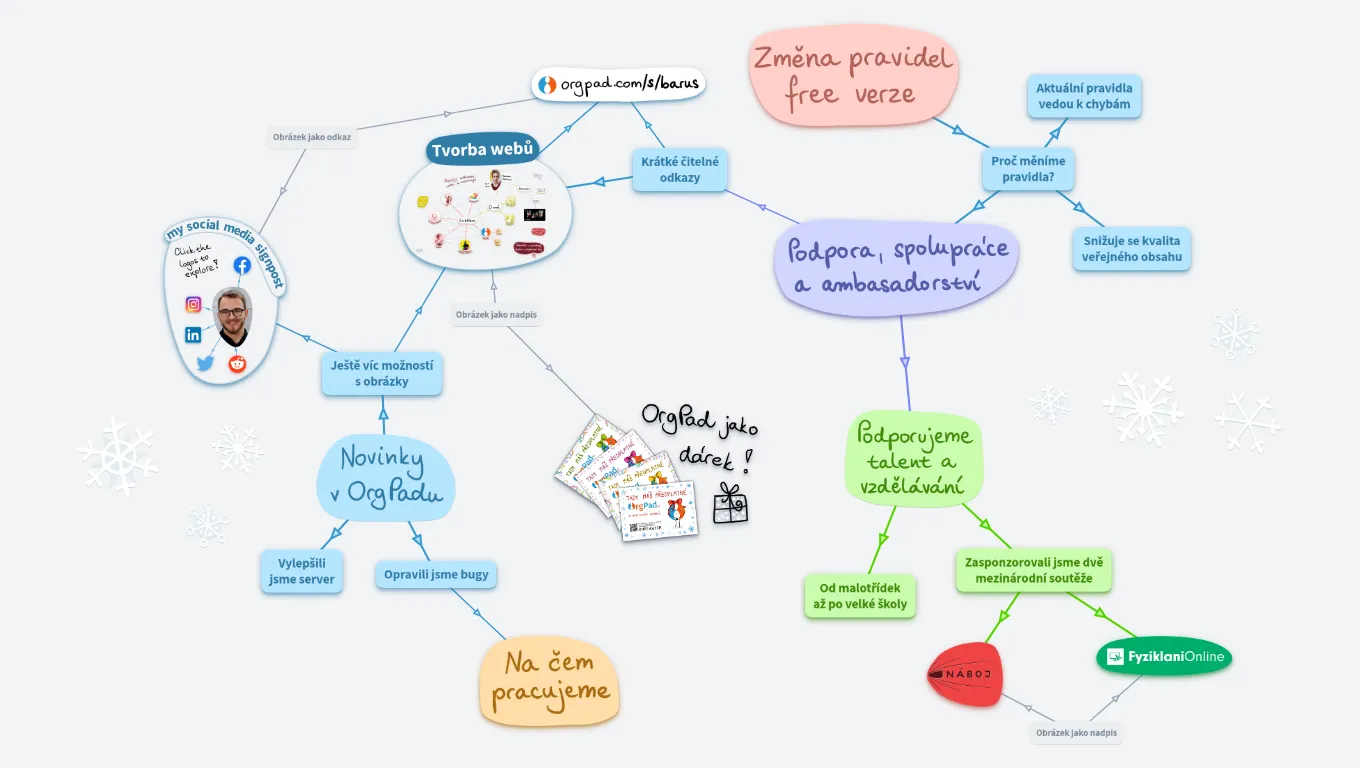 Změna pravidel
free verze
orgpad.com/s/barus
Aktuální pravidla
vedou k chybám
Obrázek jako odkaz
Tvorba webů
Krátké čitelné
odkazy
Proč měníme
pravidla?
my social media signpost
Click the
logos to
explore!
Podpora, spolupráce
a ambasadorství
Snižuje se kvalita
veřejného obsahu
Obrázek jako nadpis
Ještě víc možností
s obrázky
OrgPad jako
dárek!
Novinky
v OrgPadu
Podporujeme
talent a
vzdělávání
TADY MÁŠ PŘEDPLATNÉ
OrgPad
Vylepšili
jsme server
Opravili jsme bugy
Od malotřídek
až po velké školy
Zasponzorovali jsme dvě
mezinárodní soutěže
Na čem
pracujeme
NÁBOJ
FyziklaniOnline
Obrázek jako nadpis